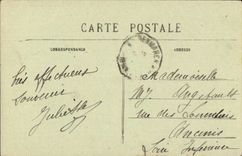 CARTE POSTALE
CORRESPONDANCE
ADRESSE
Très affectueux
souvenir
Juliette
Mademoiselle
M
rue des Tonneliers
Ancenis
Loire Inférieure